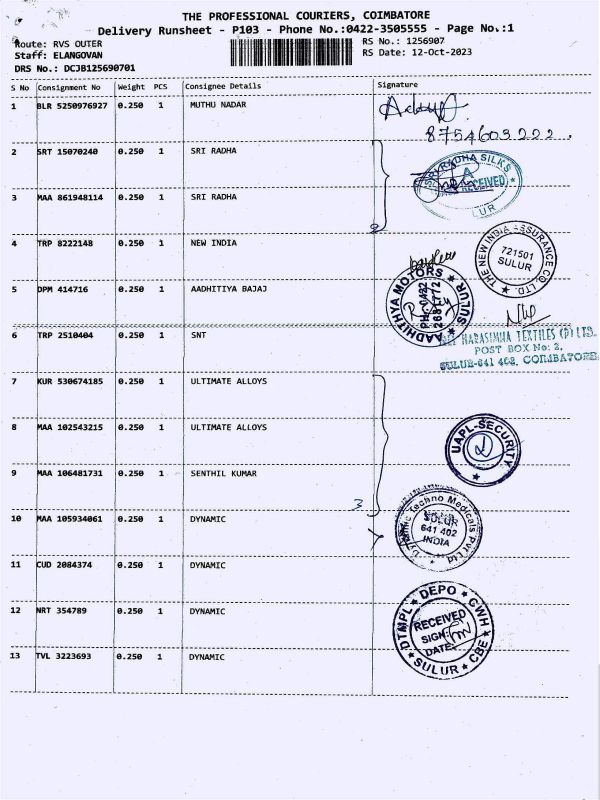 THE PROFESSIONAL COURIERS, COIMBATORE
Delivery Runsheet - P103 - Phone No.:0422-3505555 - Page No.:1
Route: RVS OUTER
RS No.: 1256907
Staff: ELANGOVAN
RS Date: 12-Oct-2023
DRS No.: DCJB125690701
S No Consignment No Weight PCS Consignee Details Signature
1 BLR 5250976927 0.250 1 MUTHU NADAR
8754603222.
2 SRT 15070240 0.250 1 SRI RADHA
SRI RADHA SILKS
RECEIVED
SULUR
3 MAA 861948114 0.250 1 SRI RADHA
2
4 TRP 8222148 0.250 1 NEW INDIA
THE NEW INDIA ASSURANCE CO. LTD.
721501
SULUR
5 DPM 414716 0.250 1 AADHITIYA BAJAJ
AADHITHYA MOTORS
SULUR
PH: 0422
2681772
6 TRP 2510404 0.250 1 SNT
HARASIMHA TEXTILES (P) LTD.
POST BOX No: 2,
SULUR-641 402, COIMBATORE
7 KUR 530674185 0.250 1 ULTIMATE ALLOYS
8 MAA 102543215 0.250 1 ULTIMATE ALLOYS
UAPL-SECURITY
9 MAA 106481731 0.250 1 SENTHIL KUMAR
3
10 MAA 105934061 0.250 1 DYNAMIC
Dynamic Techno Medicals Pvt Ltd
SULUR
641 402
INDIA
11 CUD 2084374 0.250 1 DYNAMIC
12 NRT 354789 0.250 1 DYNAMIC
DTMPL DEPO CWH
RECEIVED
SIGN:
DATE:
SULUR CBE
13 TVL 3223693 0.250 1 DYNAMIC